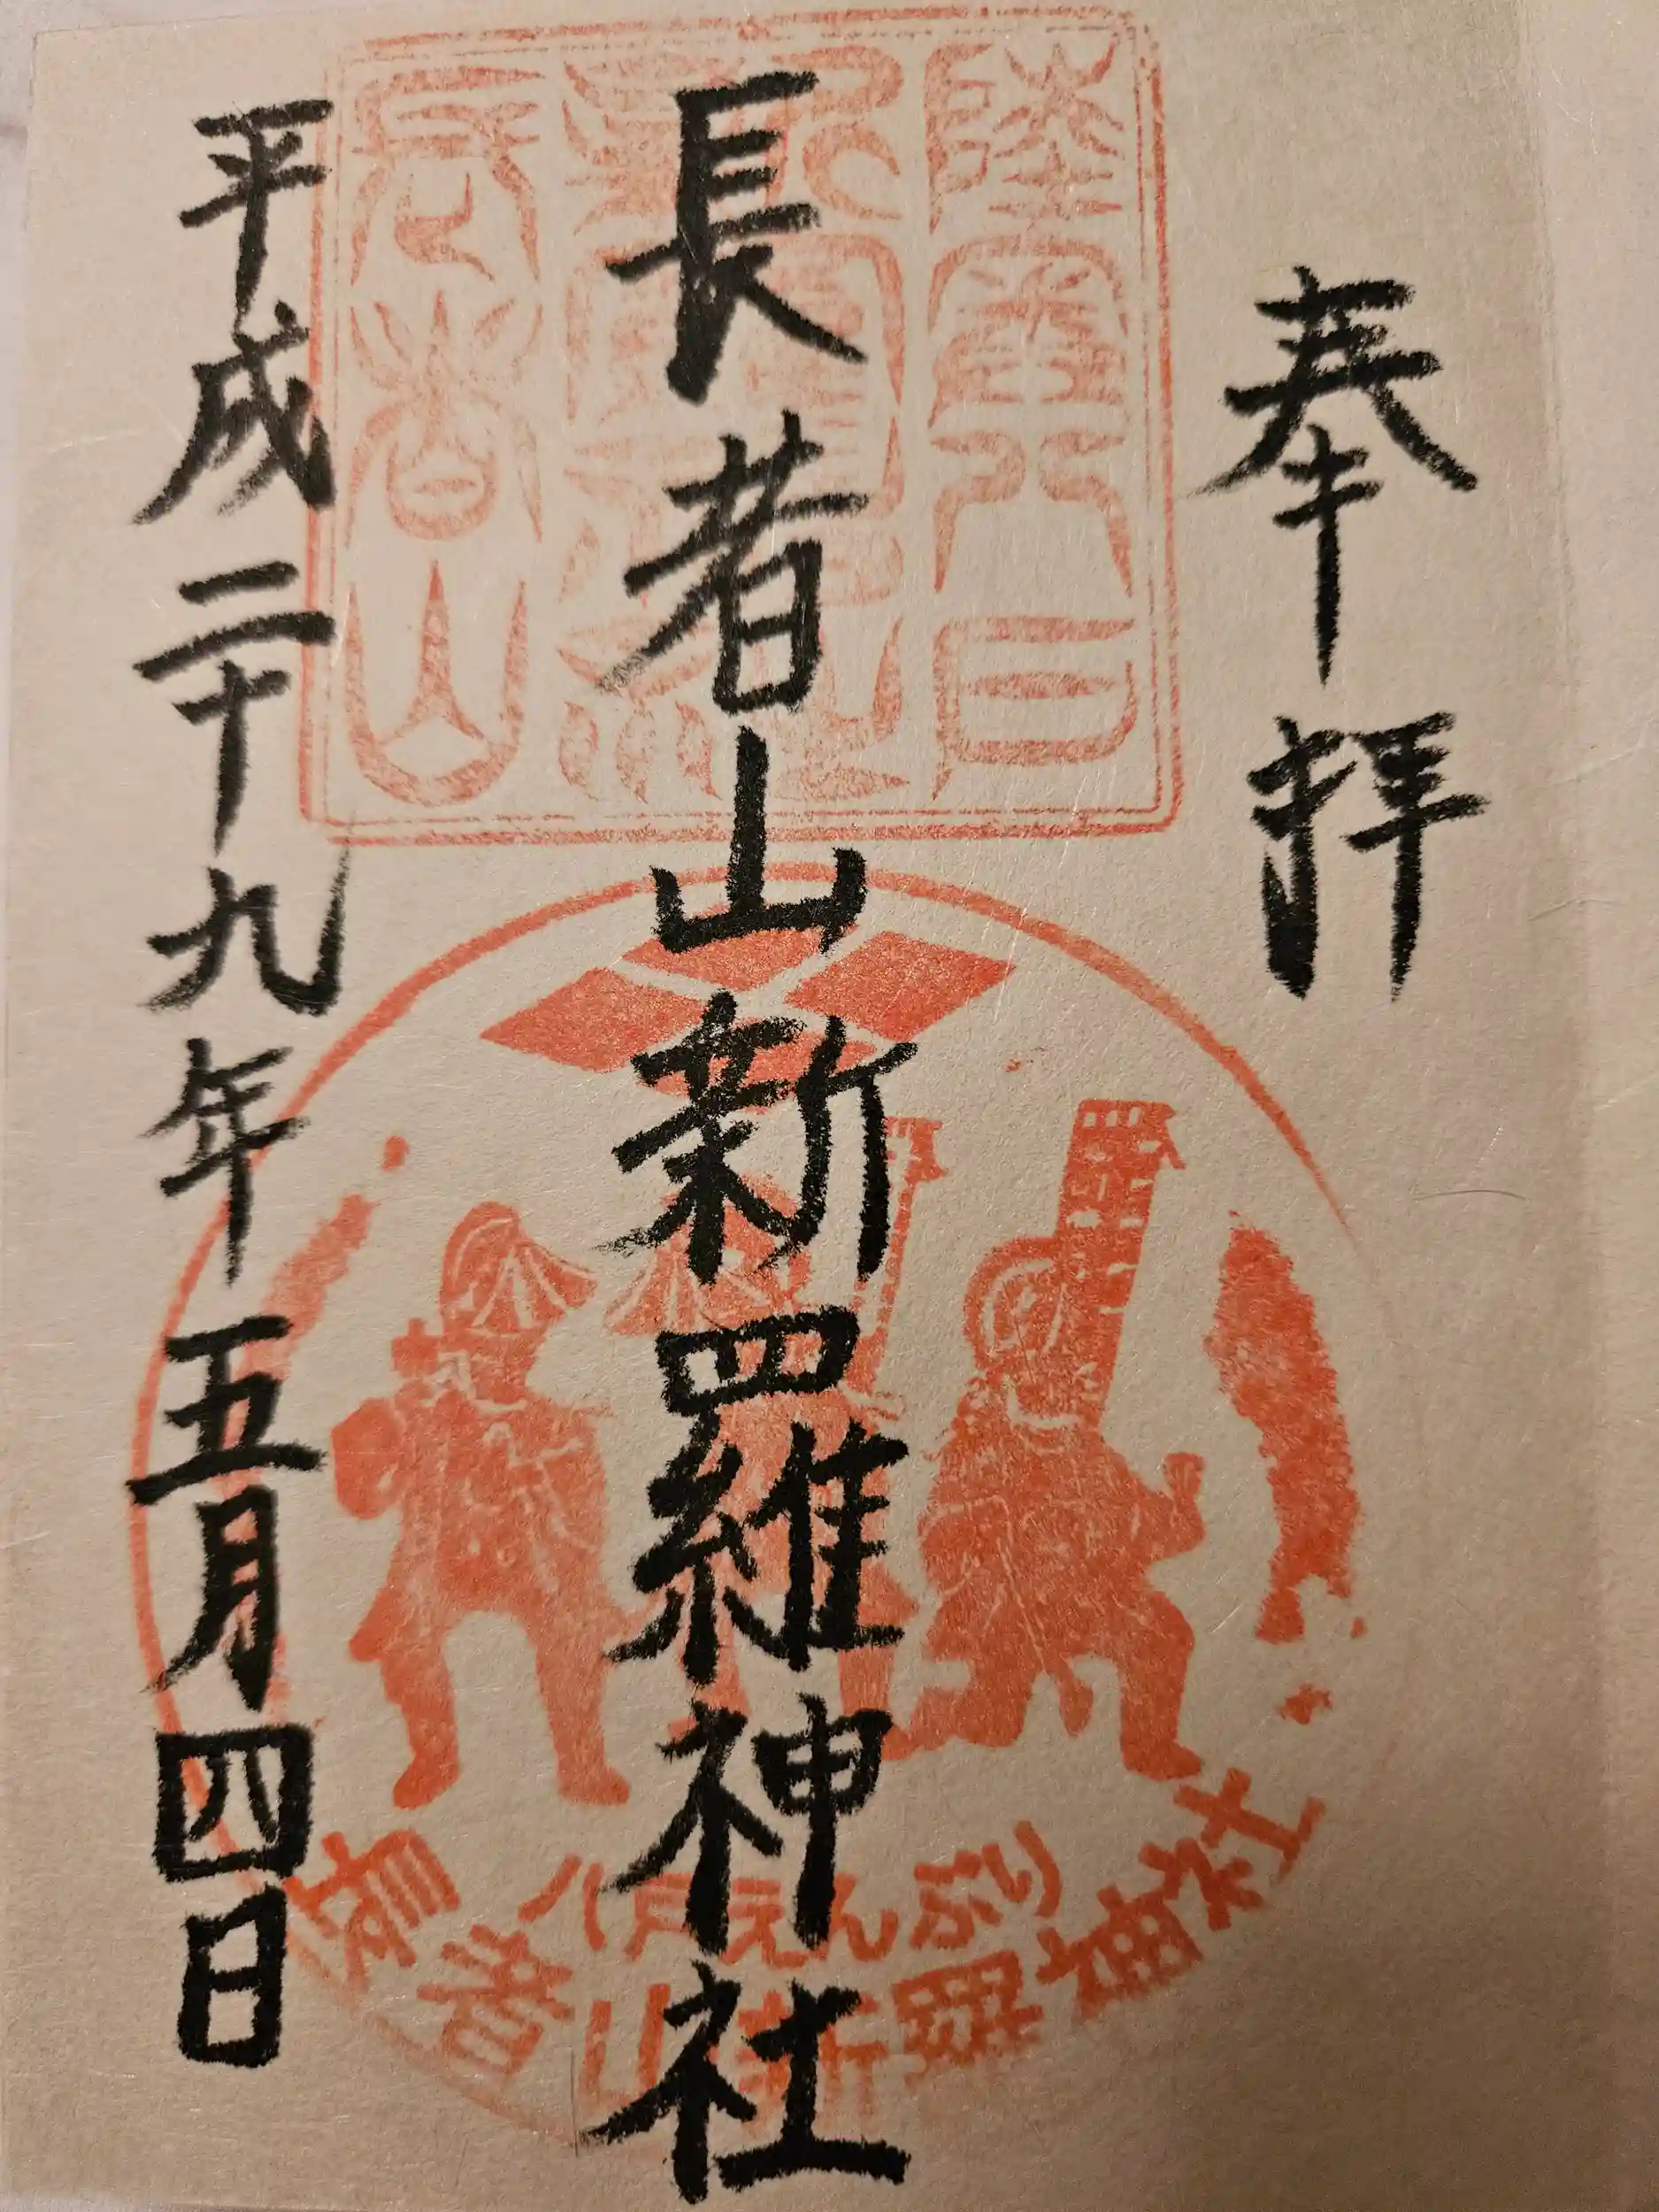 奉拝
長者山新羅神社
平成二十九年五月四日
陸奥八戸
長者山
八戸えんぶり
長者山新羅神社